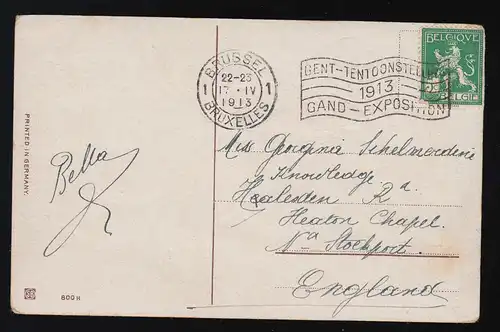 BRUSSEL
1 22-23 1
17·IV
1913
BRUXELLES
GENT-TENTOONSTELLING
1913
GAND-EXPOSITION
BELGIQUE
BELGIË
PRINTED IN GERMANY.
Bella
Miss Georgina Schelmerdine
Knowledge.
Rd
Heaton Chapel.
Nr Stockport.
England
600 H